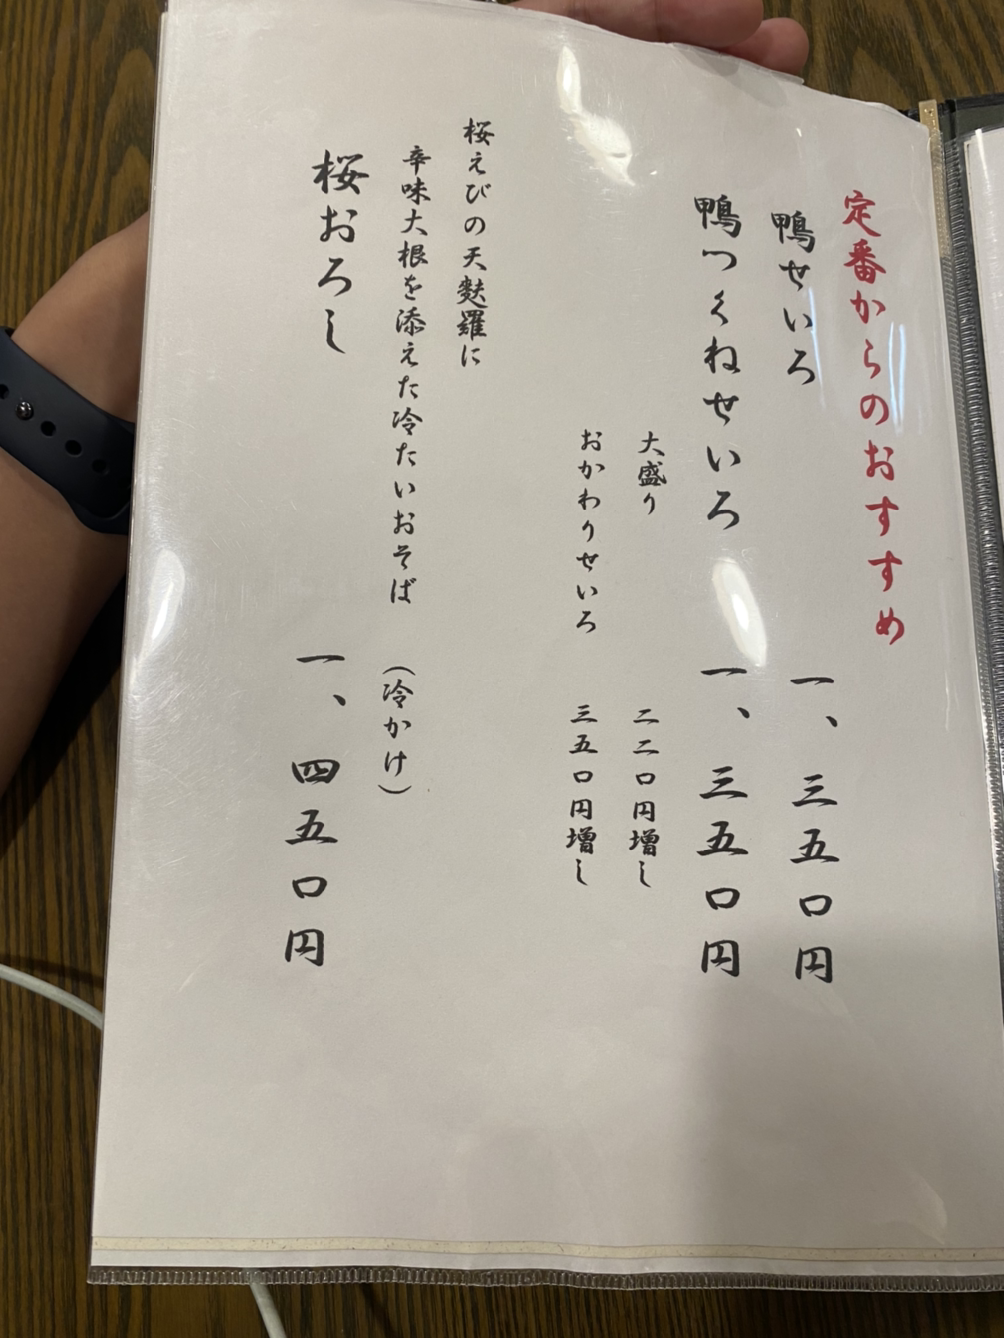 定番からのおすすめ
鴨せいろ 一、三五〇円
鴨つくねせいろ 一、三五〇円
大盛り 二二〇円増し
おかわりせいろ 三五〇円増し
桜えびの天麩羅に
辛味大根を添えた冷たいおそば (冷かけ)
桜おろし 一、四五〇円